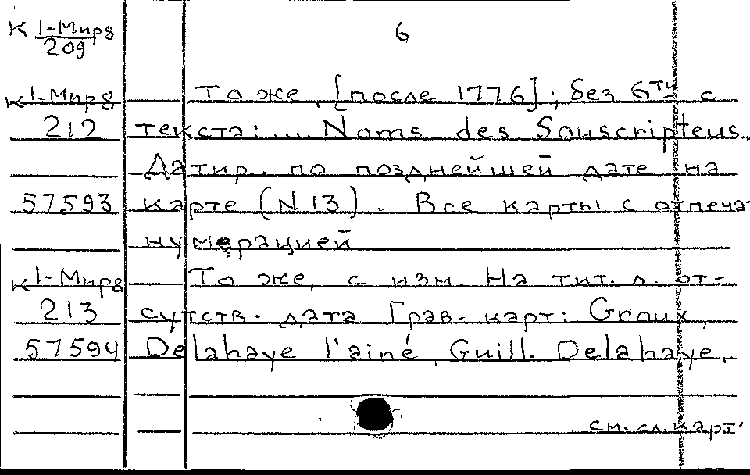 К 1-Мира 6
209
К 1-Мира То же, [после 1776]; без 6ти с
212 текста: ... Noms des Souscripteus.
Датир. по позднейшей дате на
57593 карте (N 13). Все карты с отпеча
нумерацией
К 1-Мира То же, с изм. На тит. л. от-
213 сутств. дата Грав. карт: Groux,
57594 Delahaye l'ainé, Guill. Delahaye,
см. сл. карт